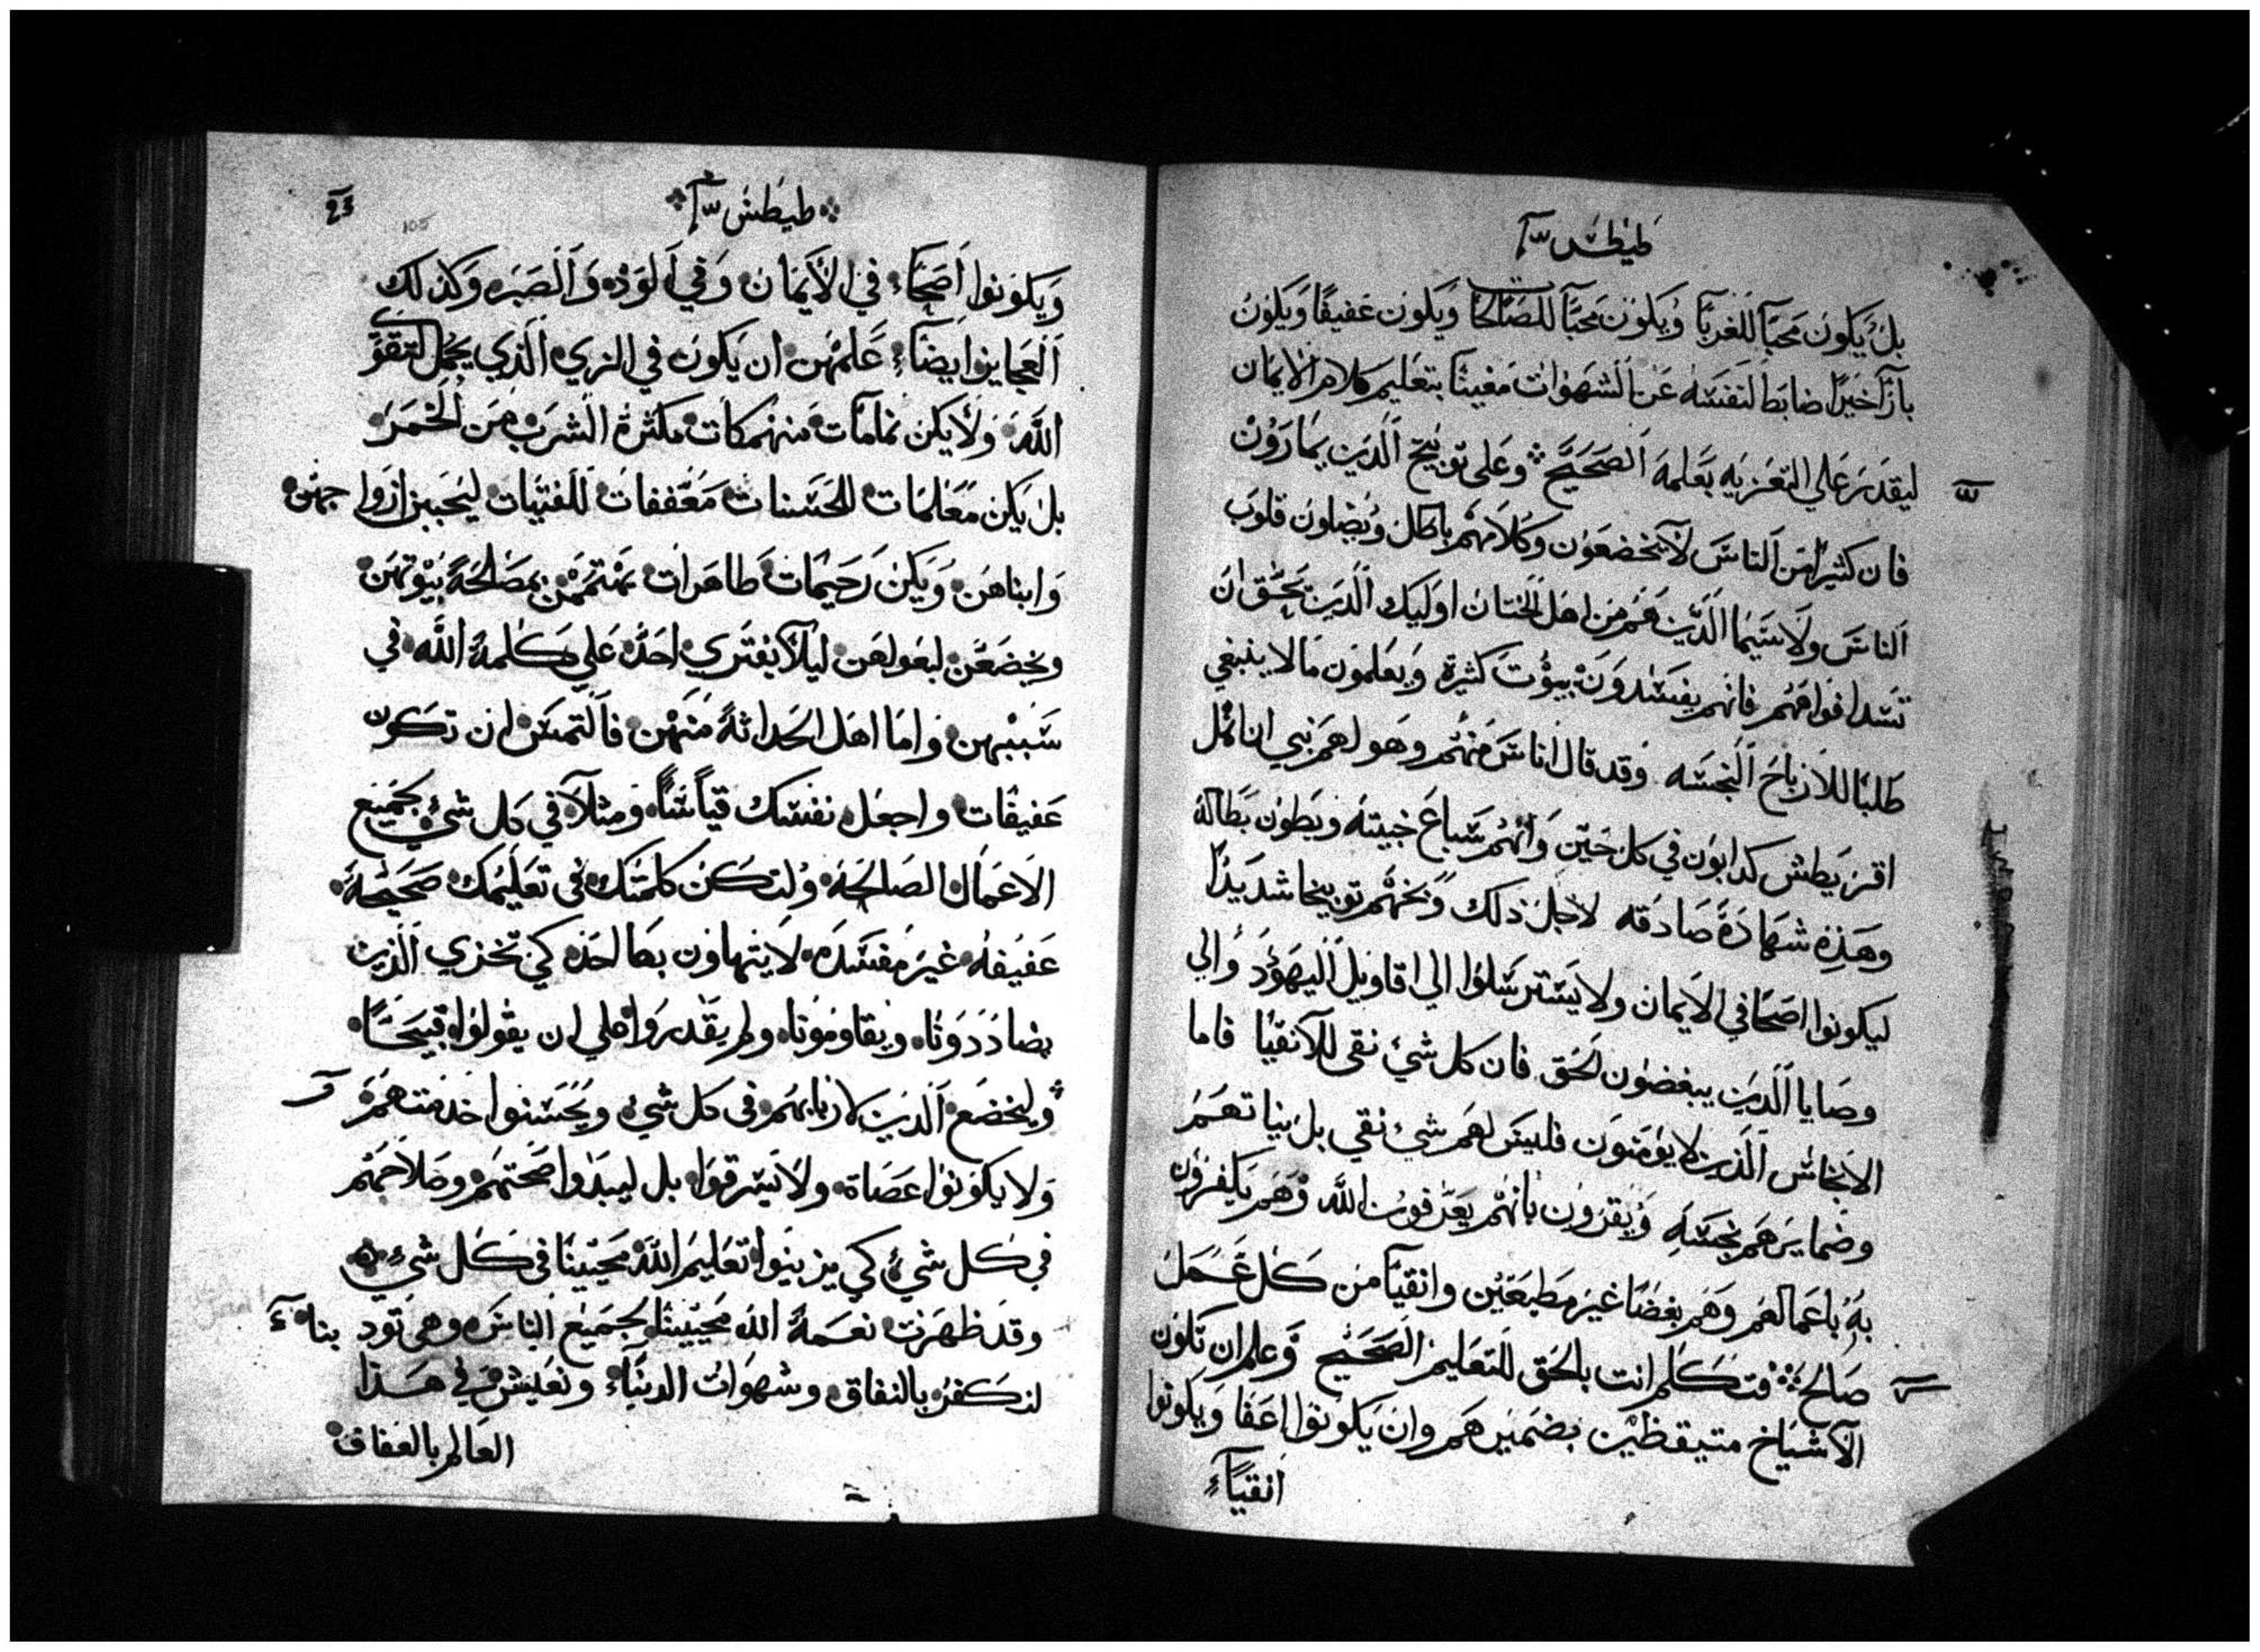 طيطس
بل يكون محبًا للغربآ ويكون محبًا للصالحات ويكون عفيفًا ويكون
بارًا خيرًا ضابط لنفسه عن الشهوات مغيثًا بتعليم كلام الايمان
ليقدر علي التعزيه بعلمه الصحيح وعلى توبيخ الذين يمارون
فان كثيرًا من الناس لا يخضعون وكلامهم باطل ويضلون قلوب
الناس ولاسيما الذين هم من اهل الختان اوليك الذين يحق ان
تسد افواههم فانهم يفسدون بيوت كثيرة ويعلمون ما لا ينبغي
طلبًا للارباح النجسه وقد قال اناس منهم وهو لهم نبي ان اهل
اقريطش كدابون في كل حين وانهم سباع خبيثه وبطون بطاله
وهذه شهادة صادقه لاجل ذلك وبخهم توبيخا شديدًا
ليكونوا اصحا في الايمان ولا يسترسلوا الي اقاويل اليهود والي
وصايا الذين يبغضون الحق فان كل شيء نقي للآنقيا فاما
الانجاس الذين لا يؤمنون فليس لهم شيء نقي بل نياتهم
وضمايرهم نجسه ويقرون بانهم يعرفون الله وهم يكفرون
به باعمالهم وهم بغضا غير مطيعين وانقيآ من كل عمل
صالح فتكلم انت بالحق للتعليم الصحيح وعلم ان تكون
الآشياخ متيقظين بضميرهم وان يكونوا اعفا ويكونوا
انقيآء
طيطس
23
105
ويكونوا اصحآء في الأيمان وفي الود والصبر وكذلك
العجايز ايضآء علمهن ان يكون في الزي الذي يجمل لتقوى
الله ولا يكن نمامات منهمكات بكثرة الشرب من الخمر
بل يكن معلمات للحسنات معففات للفتيات ليحببن ازواجهن
وابناهن ويكن رحيمات طاهرات يهتممن بمصالحة بيوتهن
ويخضعن لبعولهن ليلآ يفتري احد علي كلمة الله في
سببهن واما اهل الحداثة منهن فالتمس ان تكون
عفيفات واجعل نفسك قياسًا ومثلآ في كل شيء بجميع
الاعمال الصالحة ولتكن كلمتك في تعليمك صحيحة
عفيفه غير مفسده لا يتهاون بها احد كي تخزي الذين
يضاددونا ويقاومونا ولم يقدروا علي ان يقولوا قبيحًا
وليخضع الذين لاربابهم في كل شيء ويحسنوا خدمتهم
ولا يكونوا عصاة ولا يسرقوا بل ليبدوا صحتهم وصلاحهم
في كل شيء كي يزينوا تعليم الله محيينا في كل شيء
وقد ظهرت نعمة الله محيينا لجميع الناس وهي تود بنا
لنكفر بالنفاق وشهوات الدنيآء ونعيش في هذا
العالم بالعفاف